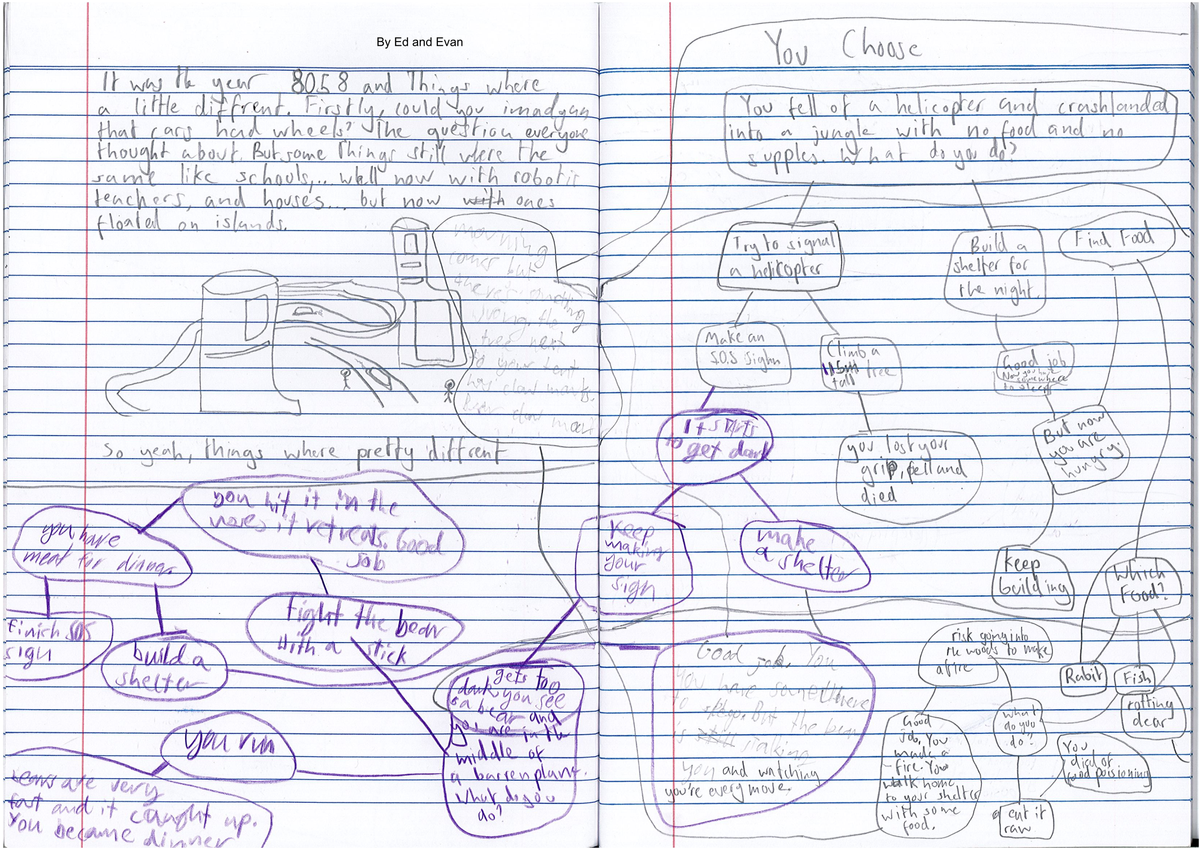 By Ed and Evan
It was the year 8058 and Things where
a little diffrent. Firstly, could you imadgan
that cars had wheels? The question everyone
thought about. But some Things still where the
same like schools,... well now with robotic
teachers, and houses... but now with ones
floated on islands.
morning
comes but
the tree next
to your tent
has claw marks.
Bear claw mar
So yeah, things where pretty diffrent
you hit it in the
noses it retreats. Good
job
you have
meat for dinner
finish SOS
sign
build a
shelter
fight the bear
with a stick
gets too
dark you see
a bear and
you are in the
middle of
a barren plane.
What do you
do?
you run
bears are very
fast and it caught up.
You became dinner
You Choose
You fell of a helicopter and crashlanded
into a jungle with no food and no
supples. What do you do?
Try to signal
a helicopter
Build a
shelter for
the night.
Find Food
Make an
S.O.S sighn
Climb a
115m tree
tall
Good job
Now you have
somewhere
to sleep
It starts
to get dark
you lost your
grip, fell and
died
But now
you are
hungry.
keep
making
your
sign
make
a shelter
Keep
building
Which
Food?
Good job. You
You have somewhere
to sleep. But the bear
is still stalking
you and watching
you're every move.
risk going into
the woods to make
a fire
Rabit
Fish
rotting
dear
Good
job. You
made a
fire. You
walk home
to your shelter
with some
food.
what
do you
do?
You
died of
food poisioning
eat it
raw